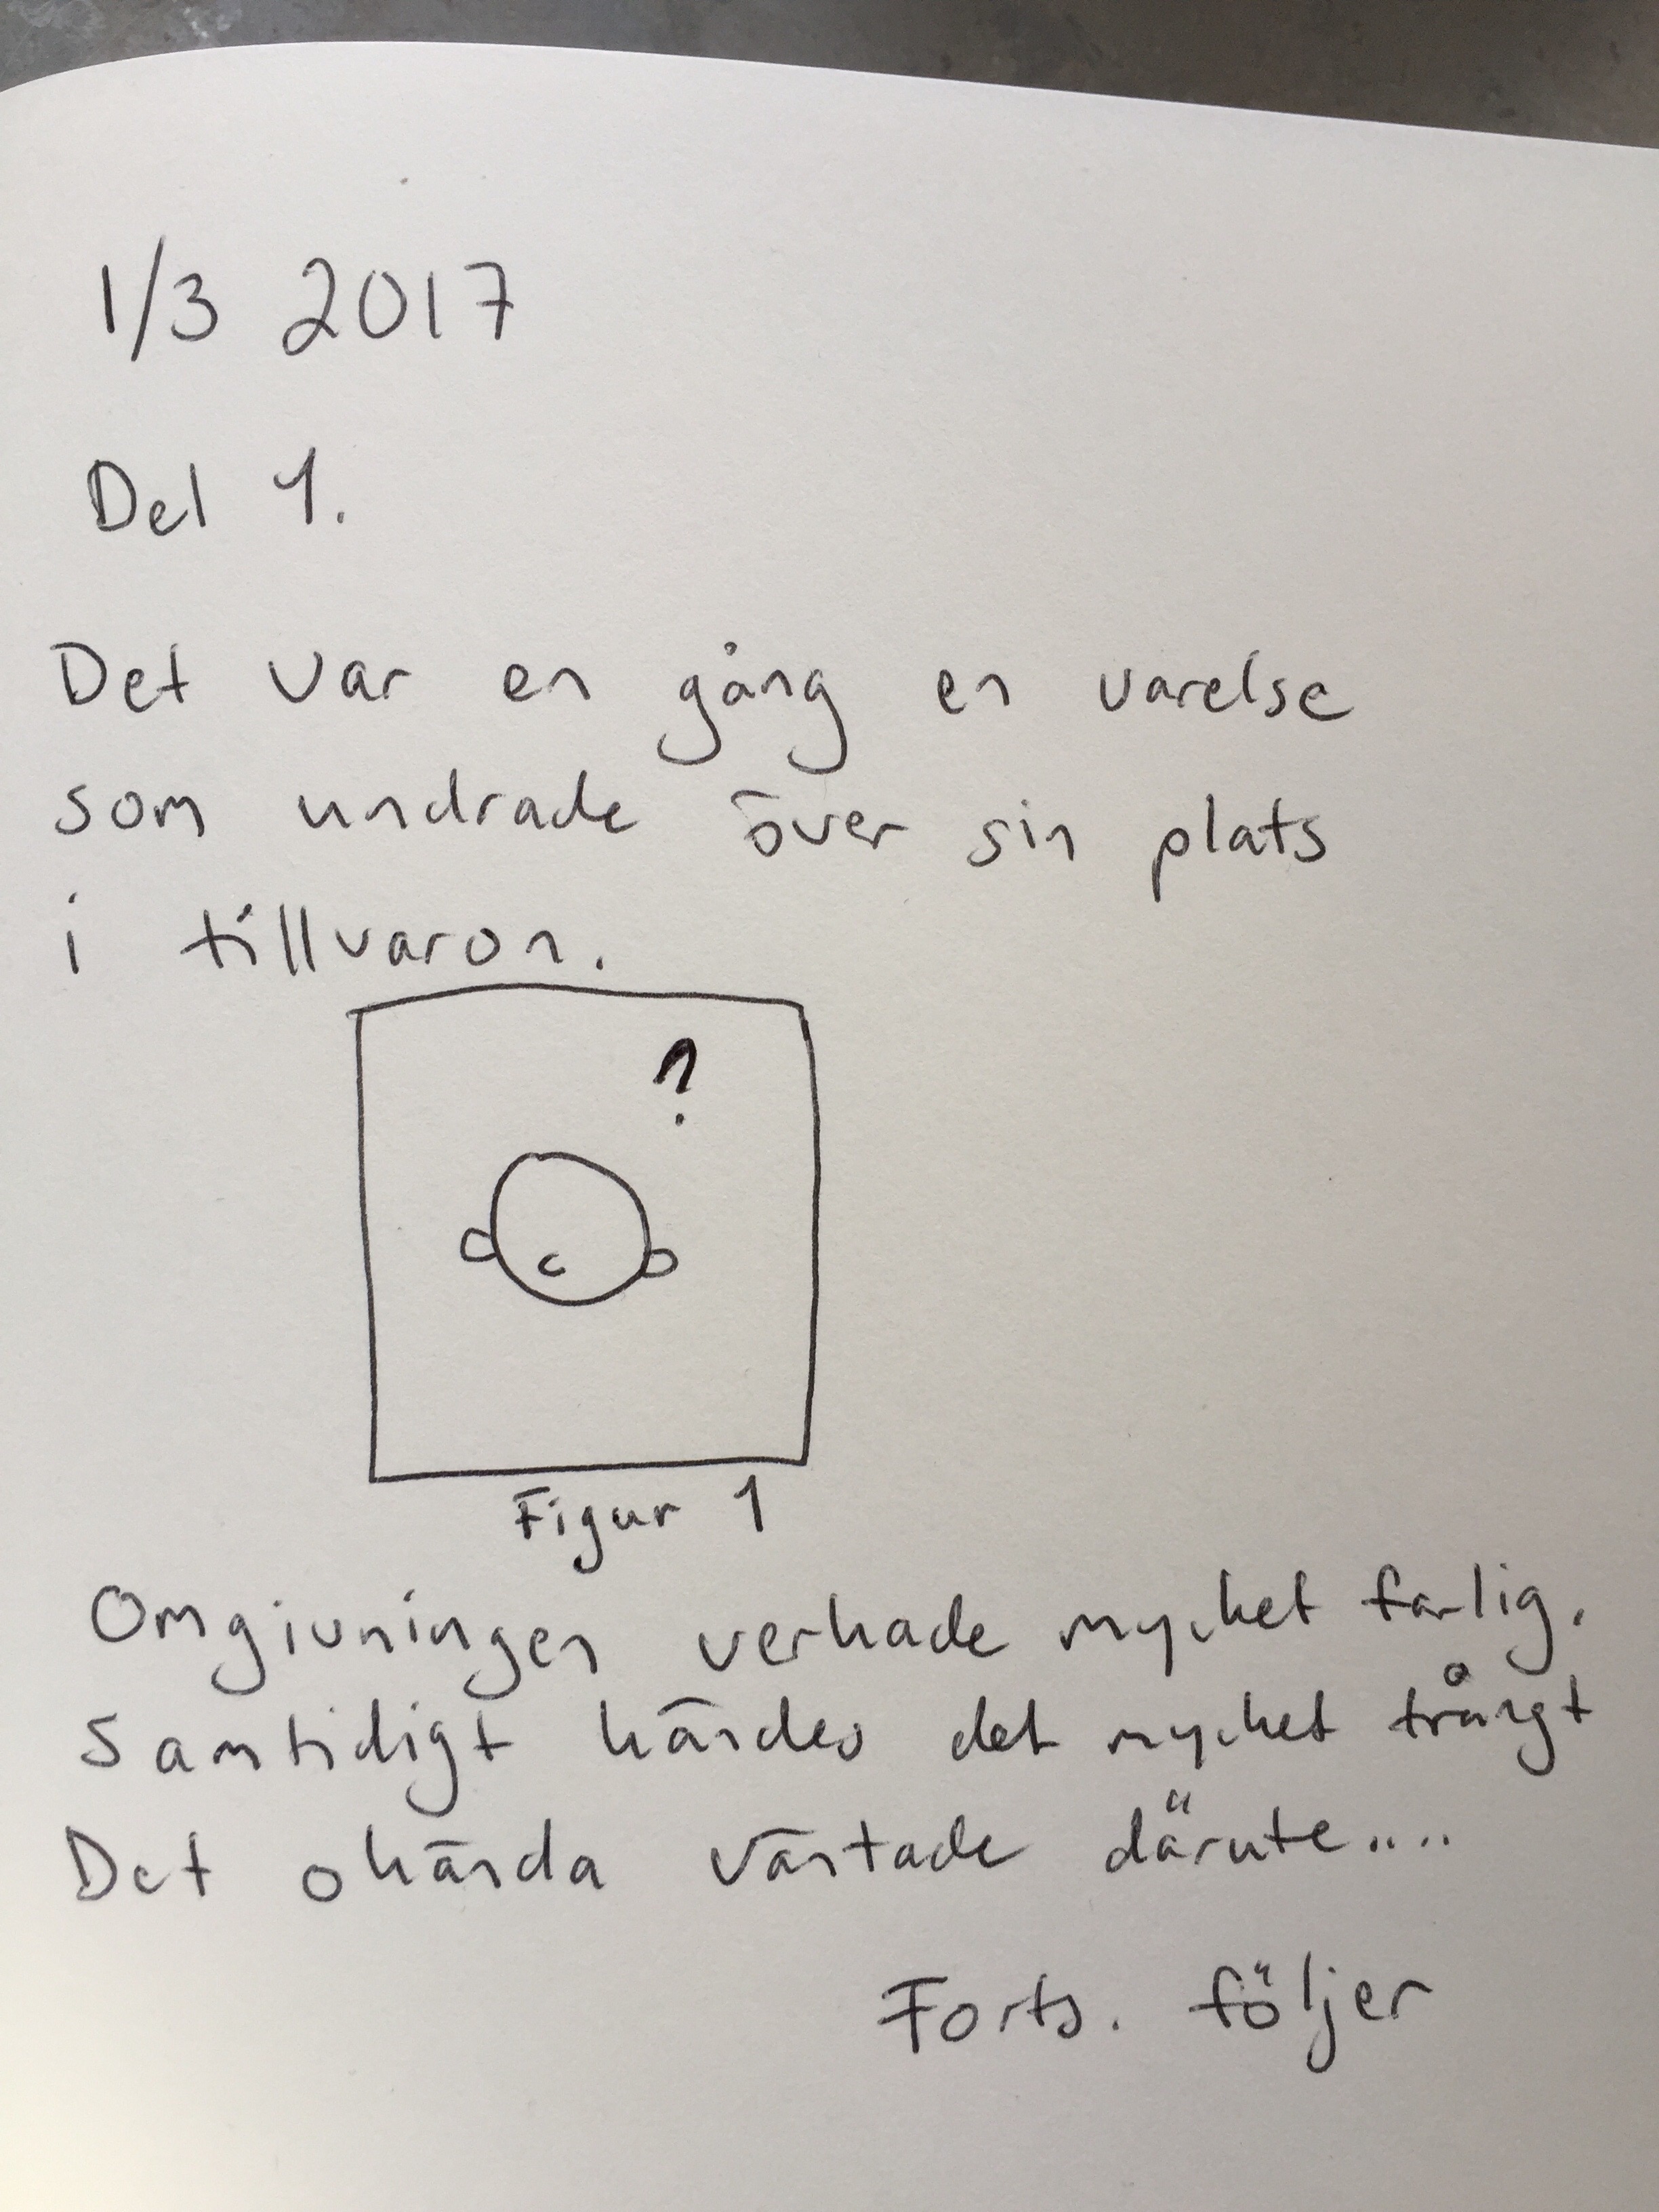 1/3 2017
Del 1.
Det var en gång en varelse
som undrade över sin plats
i tillvaron.
?
Figur 1
Omgivningen verkade mycket farlig.
Samtidigt kändes det mycket trångt
Det okända väntade därute....
Forts. följer